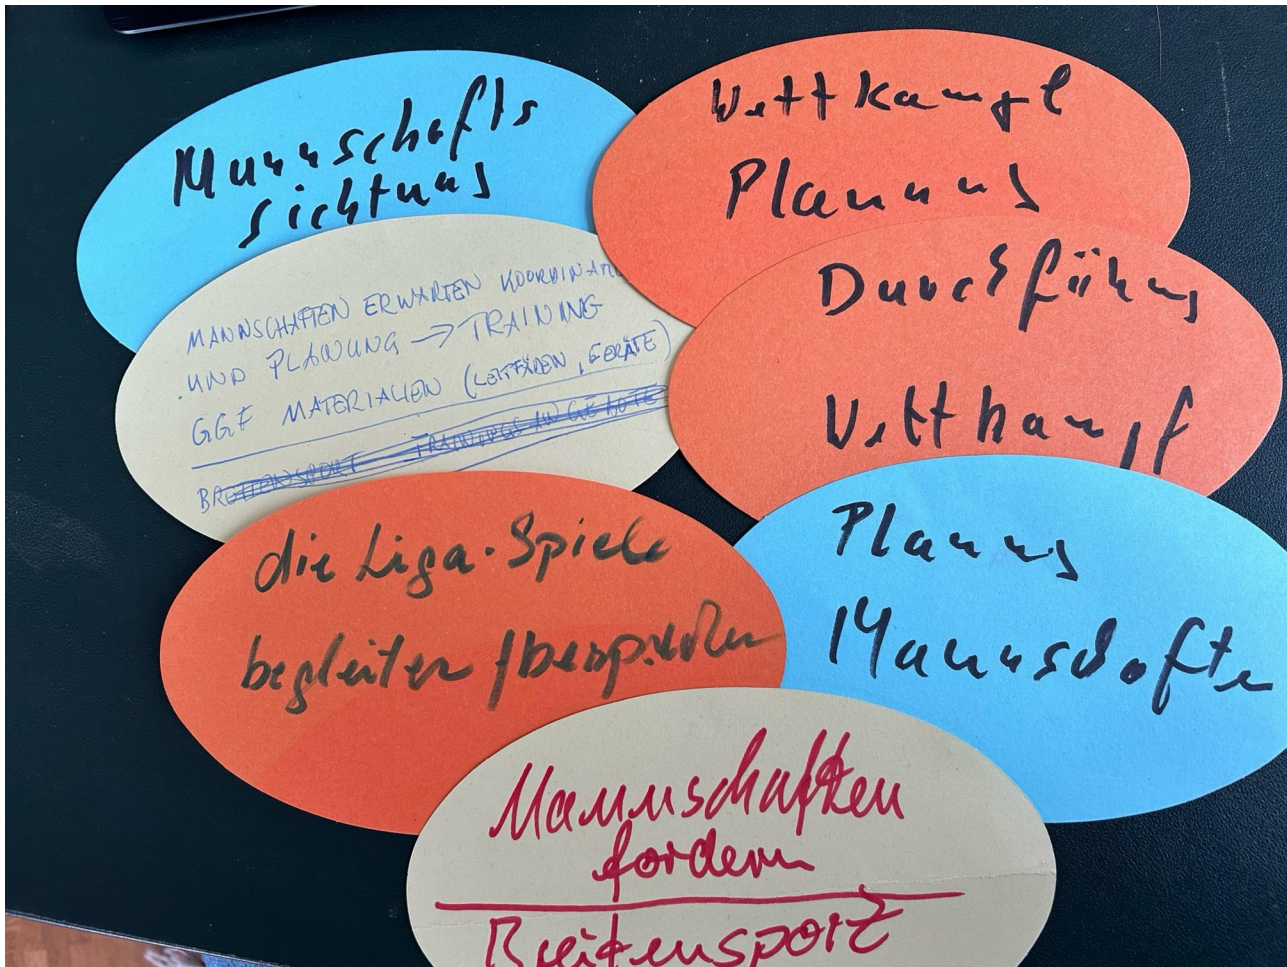 Mannschafts
sichtung
Wettkampf
Planung
MANNSCHAFTEN ERWARTEN
UND PLANUNG → TRAINING
GGF MATERIALIEN (LEITFÄDEN, GERÄTE)
BREITENSPORT TRAININGSANGEBOTE
Durchführung
Wettkampf
die Liga-Spiele
begleiten /
Planung
Mannschaften
Mannschaften
fordern
Breitensport